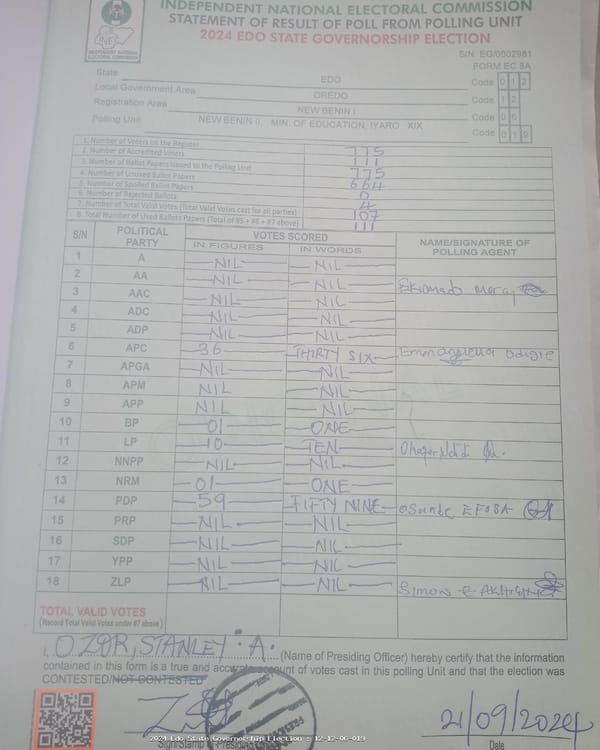 INDEPENDENT NATIONAL ELECTORAL COMMISSION
STATEMENT OF RESULT OF POLL FROM POLLING UNIT
2024 EDO STATE GOVERNORSHIP ELECTION
INEC
INDEPENDENT NATIONAL
ELECTORAL COMMISSION
S/N: EG/0002981
FORM EC 8A
State EDO Code 0 1 2
Local Government Area OREDO Code 1 2
Registration Area NEW BENIN I Code 0 6
Polling Unit NEW BENIN II, MIN. OF EDUCATION, IYARO XIX Code 0 1 9
1. Number of Voters on the Register 775
2. Number of Accredited Voters 111
3. Number of Ballot Papers Issued to the Polling Unit 775
4. Number of Unused Ballot Papers 664
5. Number of Spoiled Ballot Papers 0
6. Number of Rejected Ballots 4
7. Number of Total Valid Votes (Total Valid Votes cast for all parties) 107
8. Total Number of Used Ballots Papers (Total of #5 + #6 + #7 above) 111
S/N POLITICAL PARTY VOTES SCORED NAME/SIGNATURE OF POLLING AGENT
IN FIGURES IN WORDS
1 A NIL NIL
2 AA NIL NIL
3 AAC NIL NIL
4 ADC NIL NIL
5 ADP NIL NIL
6 APC 36 THIRTY SIX
7 APGA NIL NIL
8 APM NIL NIL
9 APP NIL NIL
10 BP 01 ONE
11 LP 10 TEN
12 NNPP NIL NIL
13 NRM 01 ONE
14 PDP 59 FIFTY NINE OSunde EFOSA
15 PRP NIL NIL
16 SDP NIL NIL
17 YPP NIL NIL
18 ZLP NIL NIL Simon E.
TOTAL VALID VOTES
(Record Total Valid Votes under #7 above)
I, OZOR, STANLEY A. (Name of Presiding Officer) hereby certify that the information
contained in this form is a true and accurate account of votes cast in this polling Unit and that the election was
CONTESTED/NOT CONTESTED
21/09/2024
Sign/Stamp of Presiding Date
2024 Edo State Governorship Election - 12-12-06-019